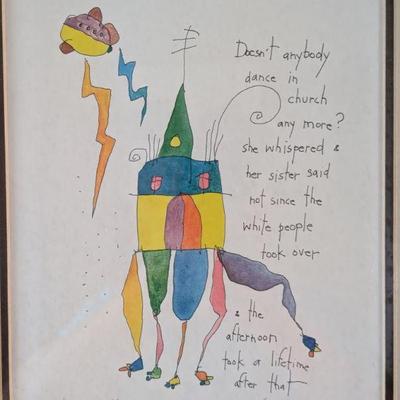 Doesn't anybody
dance in
church
any more?
she whispered &
her sister said
not since the
white people
took over
& the
afternoon
took a lifetime
after that